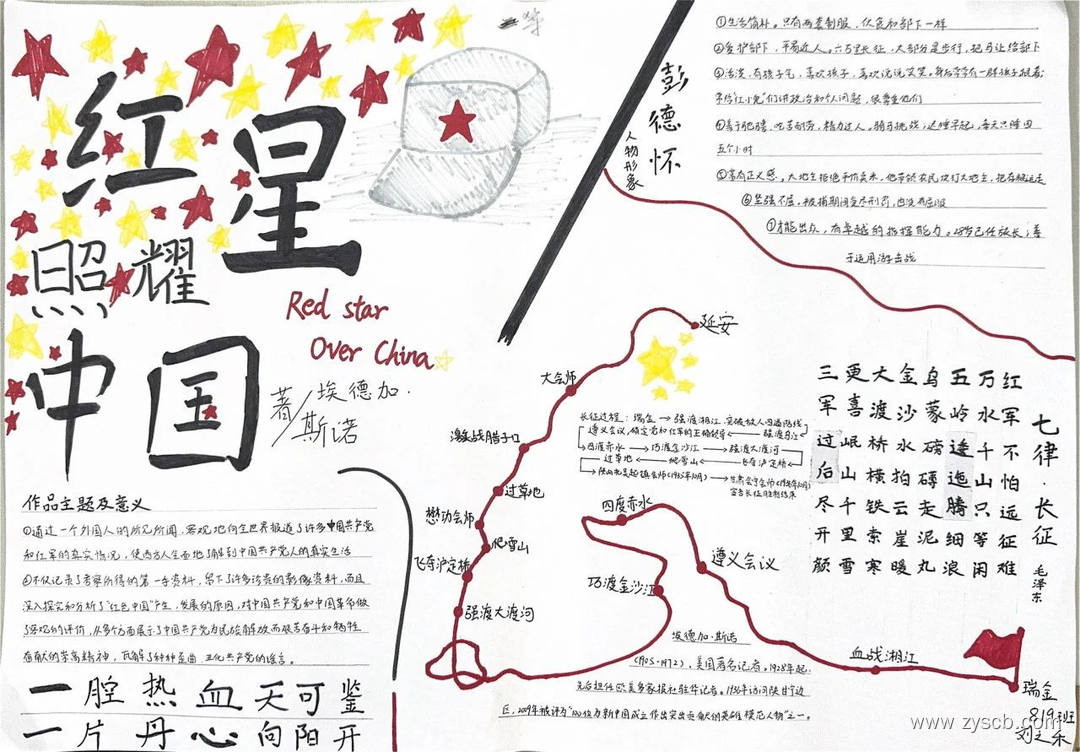 红星
照耀
中国
Red star
Over China
著/埃德加·
斯诺
彭德怀
人物形象
①生活简朴。只有两套制服,伙食和部下一样
②爱护部下,平易近人。六万里长征,大部分是步行,把马让给部下
③活泼,有孩子气,喜欢孩子,喜欢说说笑笑。身后常常有一群孩子跟着,
常给“红小鬼”们讲政治和个人问题,很尊重他们
④善于驰骋,吃苦耐劳,精力过人。骑马挑战,迟睡早起,每天只睡四
五个小时
⑤富有正义感。
⑥坚强不屈,被捕期间受尽刑罚,
⑦才能出众,有卓越的指挥能力。28岁已任旅长,善
于运用游击战
作品主题及意义
①通过一个外国人的所见所闻,客观地向全世界报道了许多中国共产党
和红军的真实情况,使西方人全面地了解到中国共产党人的真实生活
②不仅记录了考察所得的第一手资料,留下了许多珍贵的影像资料,而且
深入探究和分析了“红色中国”产生、发展的原因,对中国共产党和中国革命做
了客观的评价,从多个方面展示了中国共产党为民族解放而艰苦奋斗和牺牲
奉献的崇高精神,瓦解了种种歪曲、丑化共产党的谣言。
一腔热血天可鉴
一片丹心向阳开
延安
大会师
激战腊子口
过草地
懋功会师
爬雪山
飞夺泸定桥
强渡大渡河
四度赤水
遵义会议
巧渡金沙江
血战湘江
瑞金
长征过程:瑞金→强渡湘江,突破敌人四道防线
遵义会议,确定党和红军的正确领导←强渡乌江
四渡赤水→巧渡金沙江→强渡大渡河
过草地←爬雪山←飞夺泸定桥
陕北吴起镇会师(1935年10月)→甘肃会宁会师(1936年10月)
宣告长征胜利结束
七律·长征
毛泽东
红军不怕远征难
万水千山只等闲
五岭逶迤腾细浪
乌蒙磅礴走泥丸
金沙水拍云崖暖
大渡桥横铁索寒
更喜岷山千里雪
三军过后尽开颜
埃德加·斯诺
(1905-1972),美国著名记者。1928年起,
先后担任欧美多家报社驻华记者。1936年访问陕甘宁边
区,2009年被评为“100位为新中国成立作出突出贡献的英雄模范人物”之一。
819班
www.zyscb.com